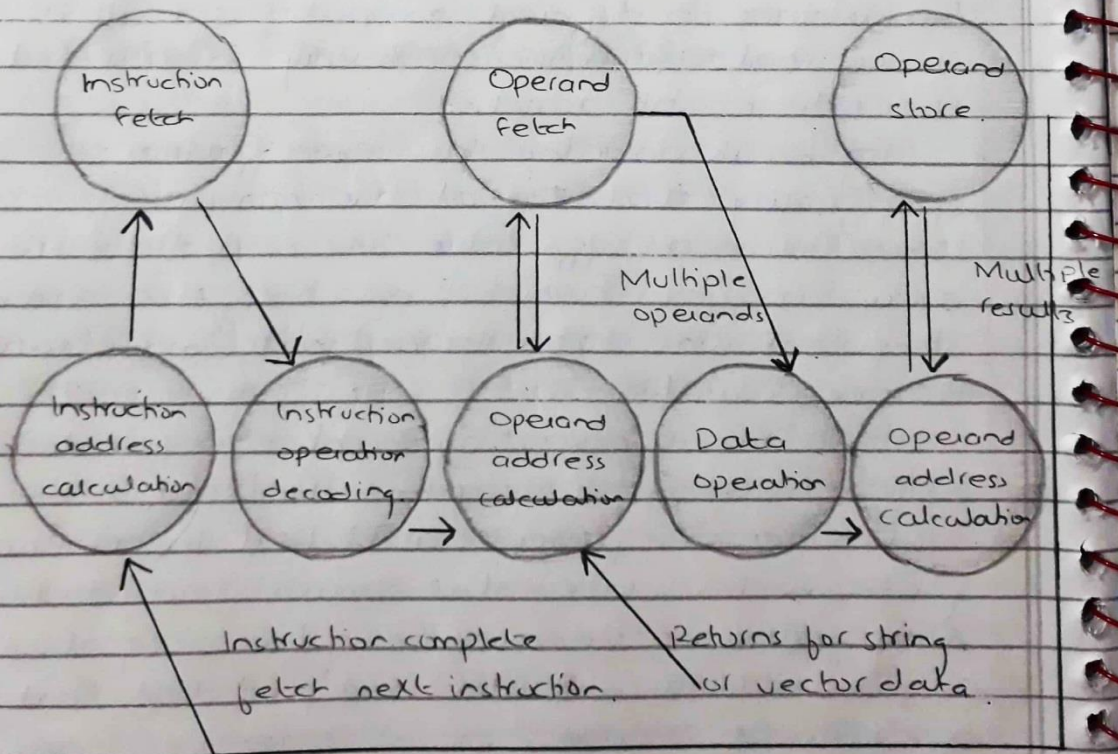 Instruction
fetch
Operand
fetch
Operand
store.
Multiple
operands
Multiple
results
Instruction
address
calculation
Instruction
operation
decoding.
Operand
address
calculation
Data
operation
Operand
address
calculation
Instruction complete
fetch next instruction.
Returns for string
or vector data